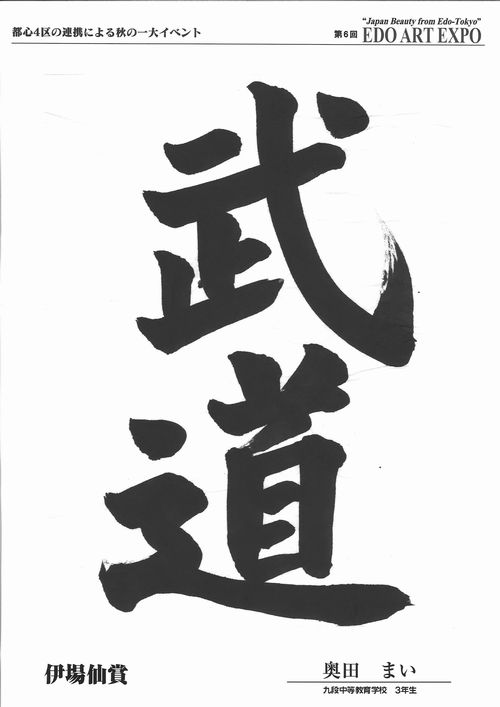 都心4区の連携による秋の一大イベント
"Japan Beauty from Edo-Tokyo"
第6回 EDO ART EXPO
武道
伊場仙賞
奥田 まい
九段中等教育学校 3年生